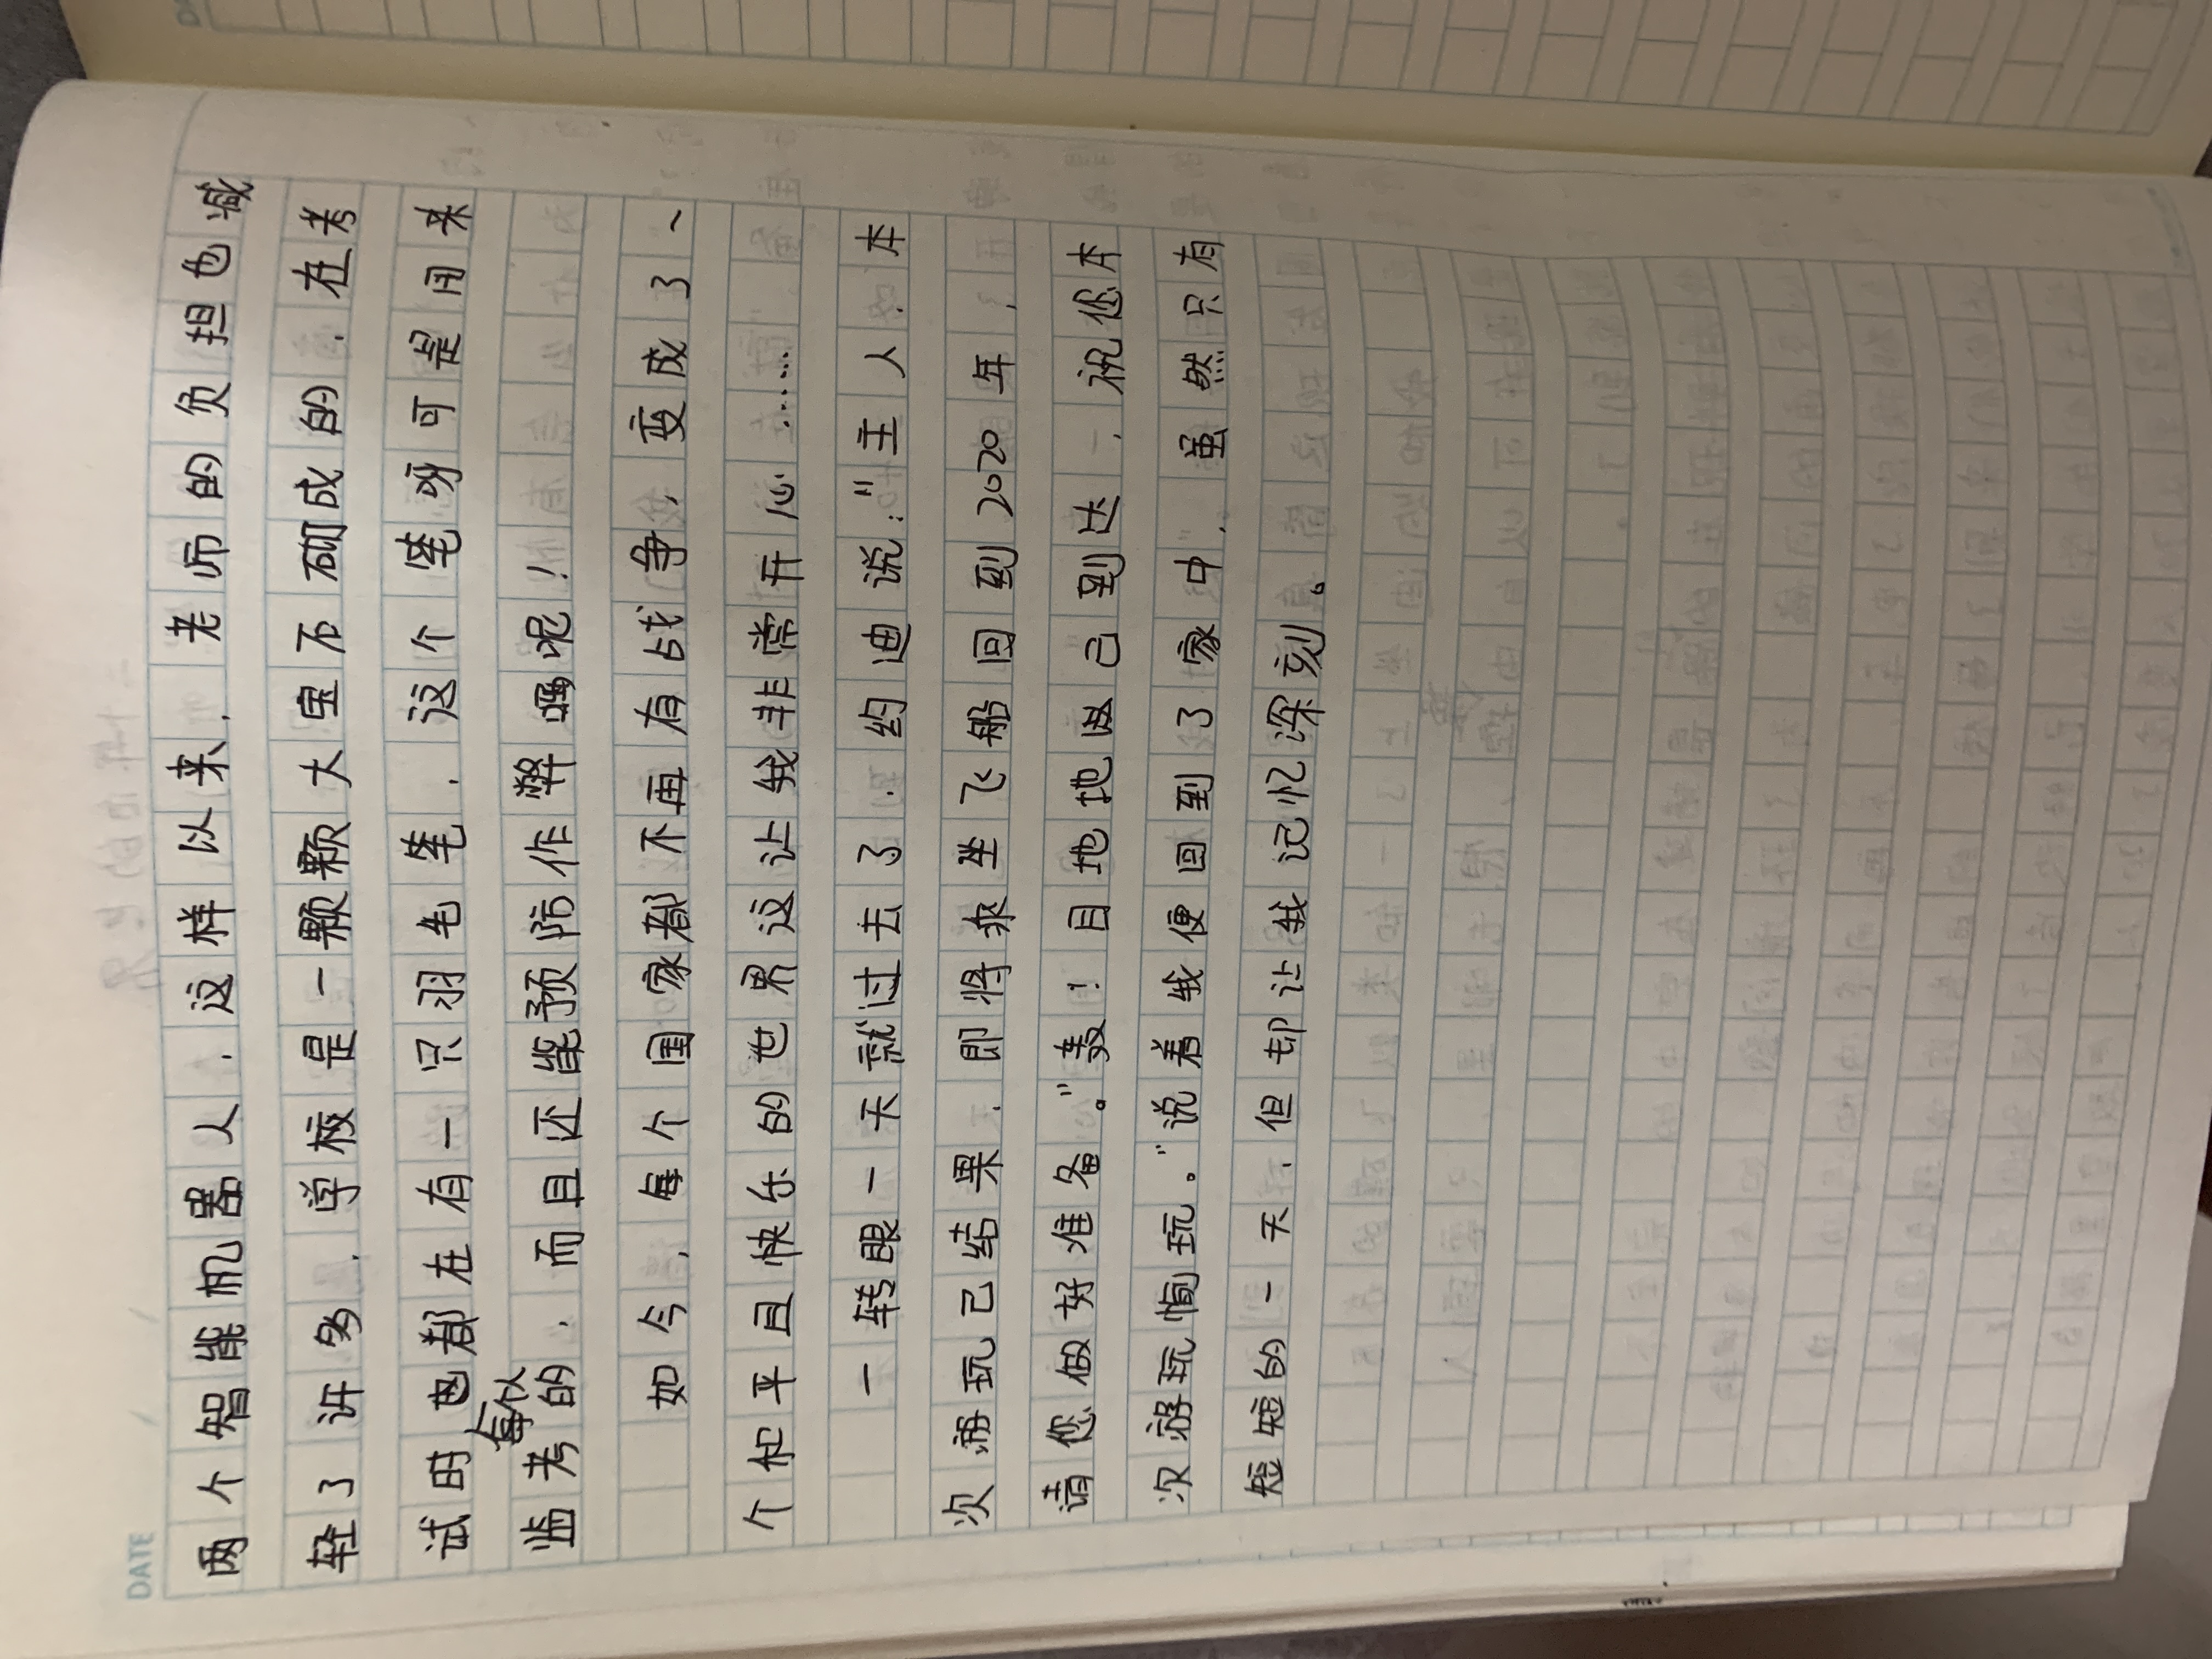 DATE
两个智能机器人,这样以来,老师的负担也减
轻了许多,学校是一颗颗大宝不砌成的,在考
试时也都在有一只羽毛笔,这个笔呀可是用来
每似
监考的,而且还能预防作弊嘞呢!
如今,每个国家都不再有战争,变成了一
个和平且快乐的世界这让我非常开心……
一转眼一天就过去了,约迪说:"主人,本
次游玩已结果,即将乘坐飞船回到2020年,
请您做好准备。"轰!目地地已到达,祝您本
次游玩愉玩。"说着我便回到了家中,虽然只有
短短的一天,但却让我记忆深刻。